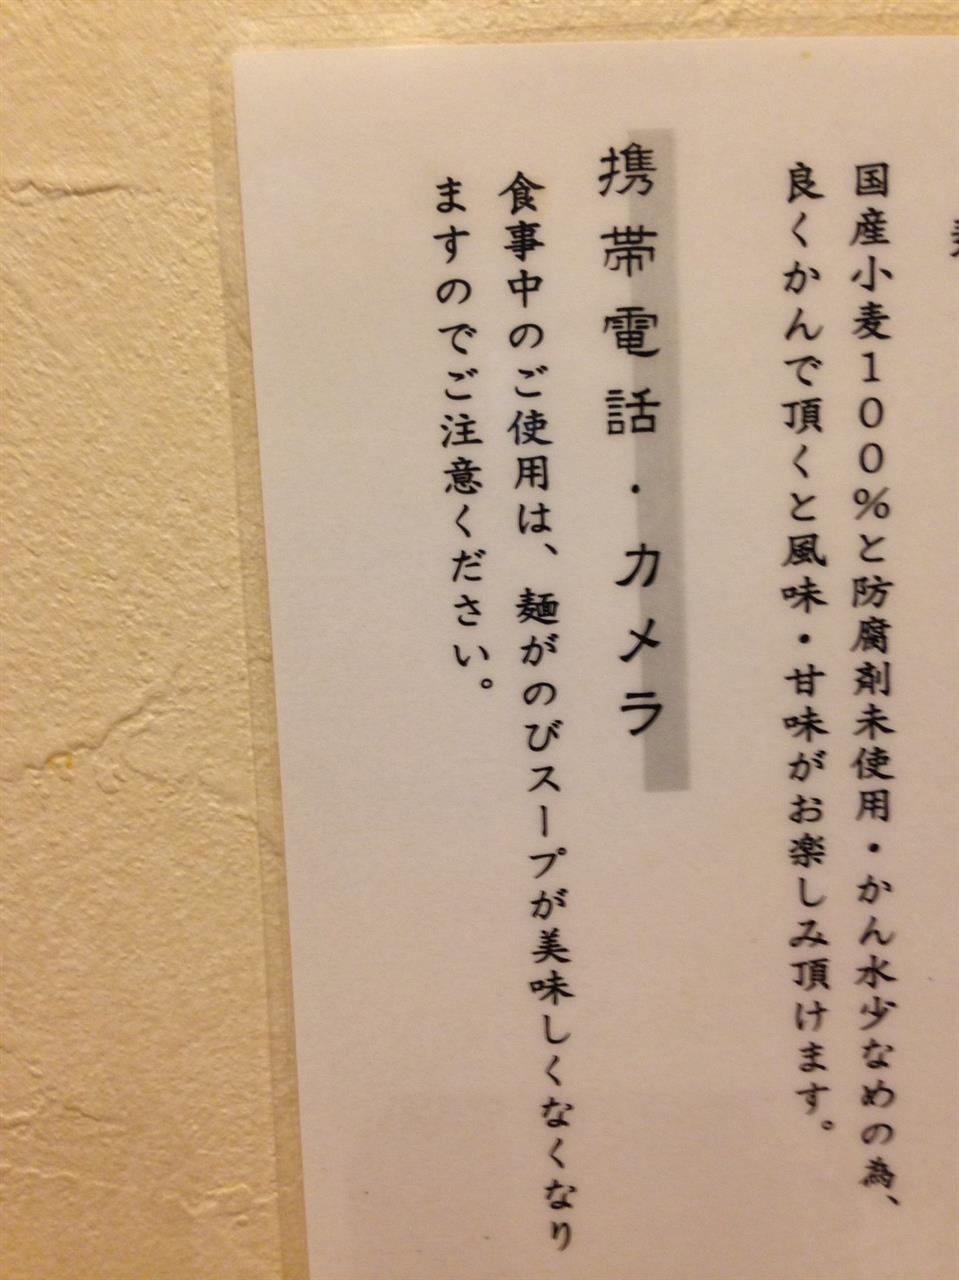 国産小麦100%と防腐剤未使用・かん水少なめの為、
良くかんで頂くと風味・甘味がお楽しみ頂けます。
携帯電話・カメラ
食事中のご使用は、麺がのびスープが美味しくなくなり
ますのでご注意ください。